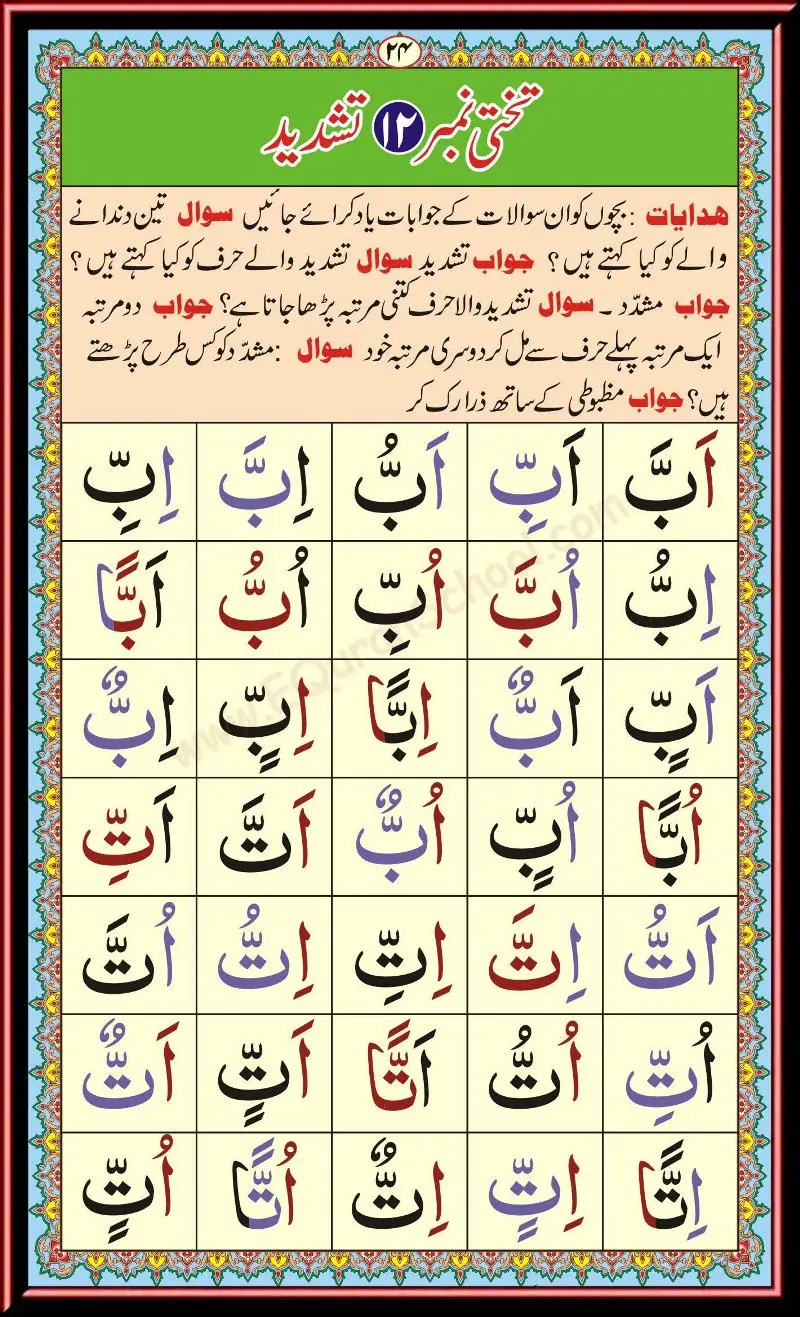 ۲۴
تختی نمبر ۱۲ تشدید
ھدایات : بچوں کو ان سوالات کے جوابات یاد کرائے جائیں سوال تین دندانے
والے کو کیا کہتے ہیں ؟ جواب تشدید سوال تشدید والے حرف کو کیا کہتے ہیں ؟
جواب مشدّد ۔ سوال تشدید والا حرف کتنی مرتبہ پڑھا جاتا ہے؟ جواب دو مرتبہ
ایک مرتبہ پہلے حرف سے مل کر دوسری مرتبہ خود سوال :مشدّد کو کس طرح پڑھتے
ہیں؟ جواب مظبوطی کے ساتھ ذرا رک کر
اَبَّ اَبِّ اَبُّ اِبَّ اِبِّ
اِبُّ اُبَّ اُبِّ اُبُّ اَبًّا
اَبٍّ اَبٌّ اِبًّا اِبٍّ اِبٌّ
اُبًّا اُبٍّ اُبٌّ اَتَّ اَتِّ
اَتُّ اِتَّ اِتِّ اِتُّ اُتَّ
اُتِّ اُتُّ اَتًّا اَتٍّ اَتٌّ
اِتًّا اِتٍّ اِتٌّ اُتًّا اُتٍّ
www.EQuranSchool.com